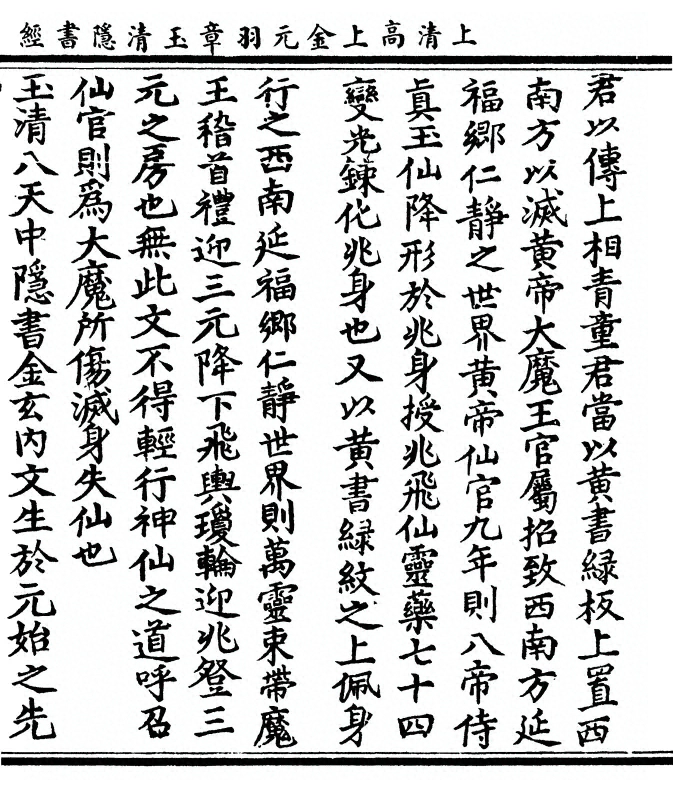 上清高上金元羽章玉清隱書經
君以傳上相青童君當以黄書緑板上置西
南方以滅黄帝大魔王官屬招致西南方延
福鄉仁靜之世界黄帝仙官九年則八帝侍
真玉仙降形於兆身授兆飛仙靈藥七十四
變光鍊化兆身也又以黄書緑紋之上佩身
行之西南延福鄉仁靜世界則萬靈束帶魔
王稽首禮迎三元降下飛輿瓊輪迎兆登三
元之房也無此文不得輕行神仙之道呼召
仙官則爲大魔所傷滅身失仙也
玉清八天中隱書金玄内文生於元始之先